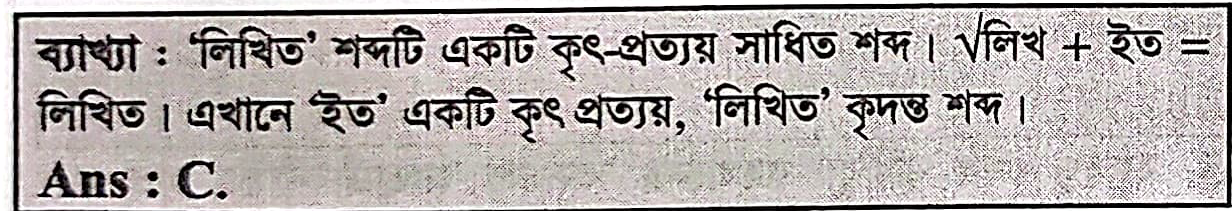 ব্যাখ্যা : ‘লিখিত’ শব্দটি একটি কৃৎ-প্রত্যয় সাধিত শব্দ। √লিখ + ইত =
লিখিত। এখানে ‘ইত’ একটি কৃৎ প্রত্যয়, ‘লিখিত’ কৃদন্ত শব্দ।
Ans : C.